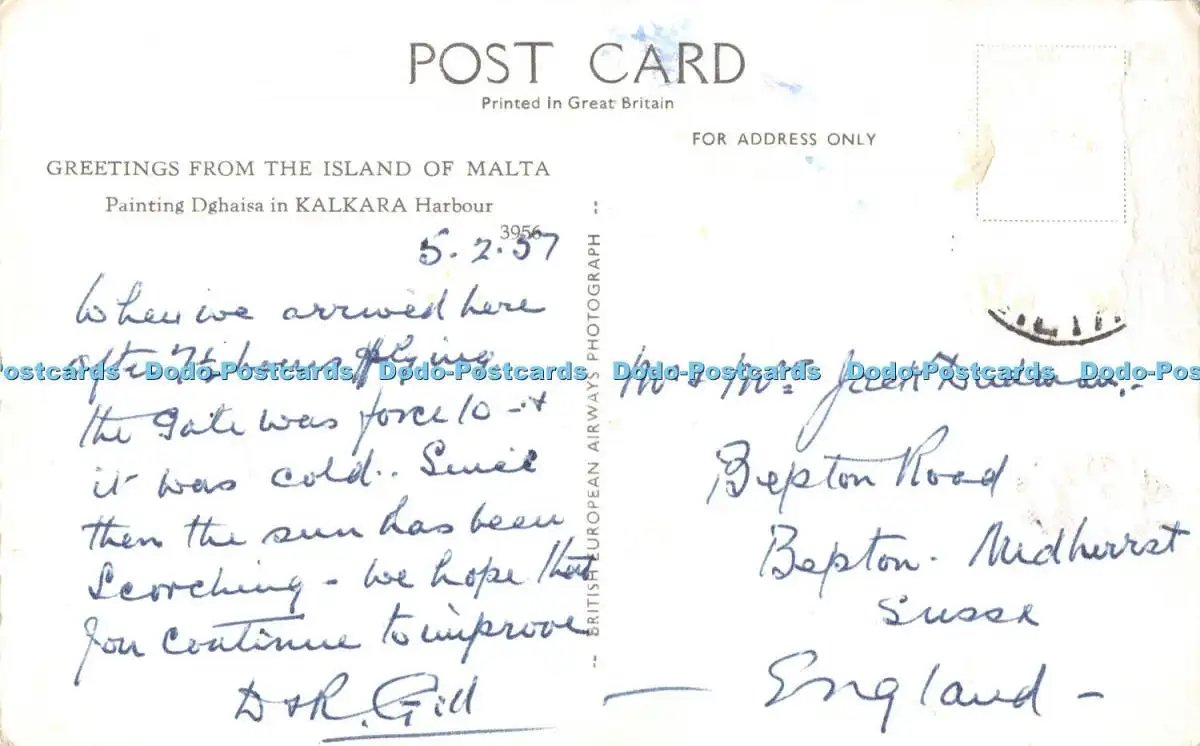 POST CARD
Printed in Great Britain
FOR ADDRESS ONLY
GREETINGS FROM THE ISLAND OF MALTA
Painting Dghaisa in KALKARA Harbour
3956
5.2.57
When we arrived here
after 7½ hours flying
the gale was force 10 - &
it was cold.. Since
then the sun has been
scorching - We hope that
you continue to improve
D & R. Gill
BRITISH EUROPEAN AIRWAYS PHOTOGRAPH
Mr & Mrs Jack
Bepton Road
Bepton. Midhurst
Sussex
England -
Dodo-Postcards Dodo-Postcards Dodo-Postcards Dodo-Postcards Dodo-Postcards